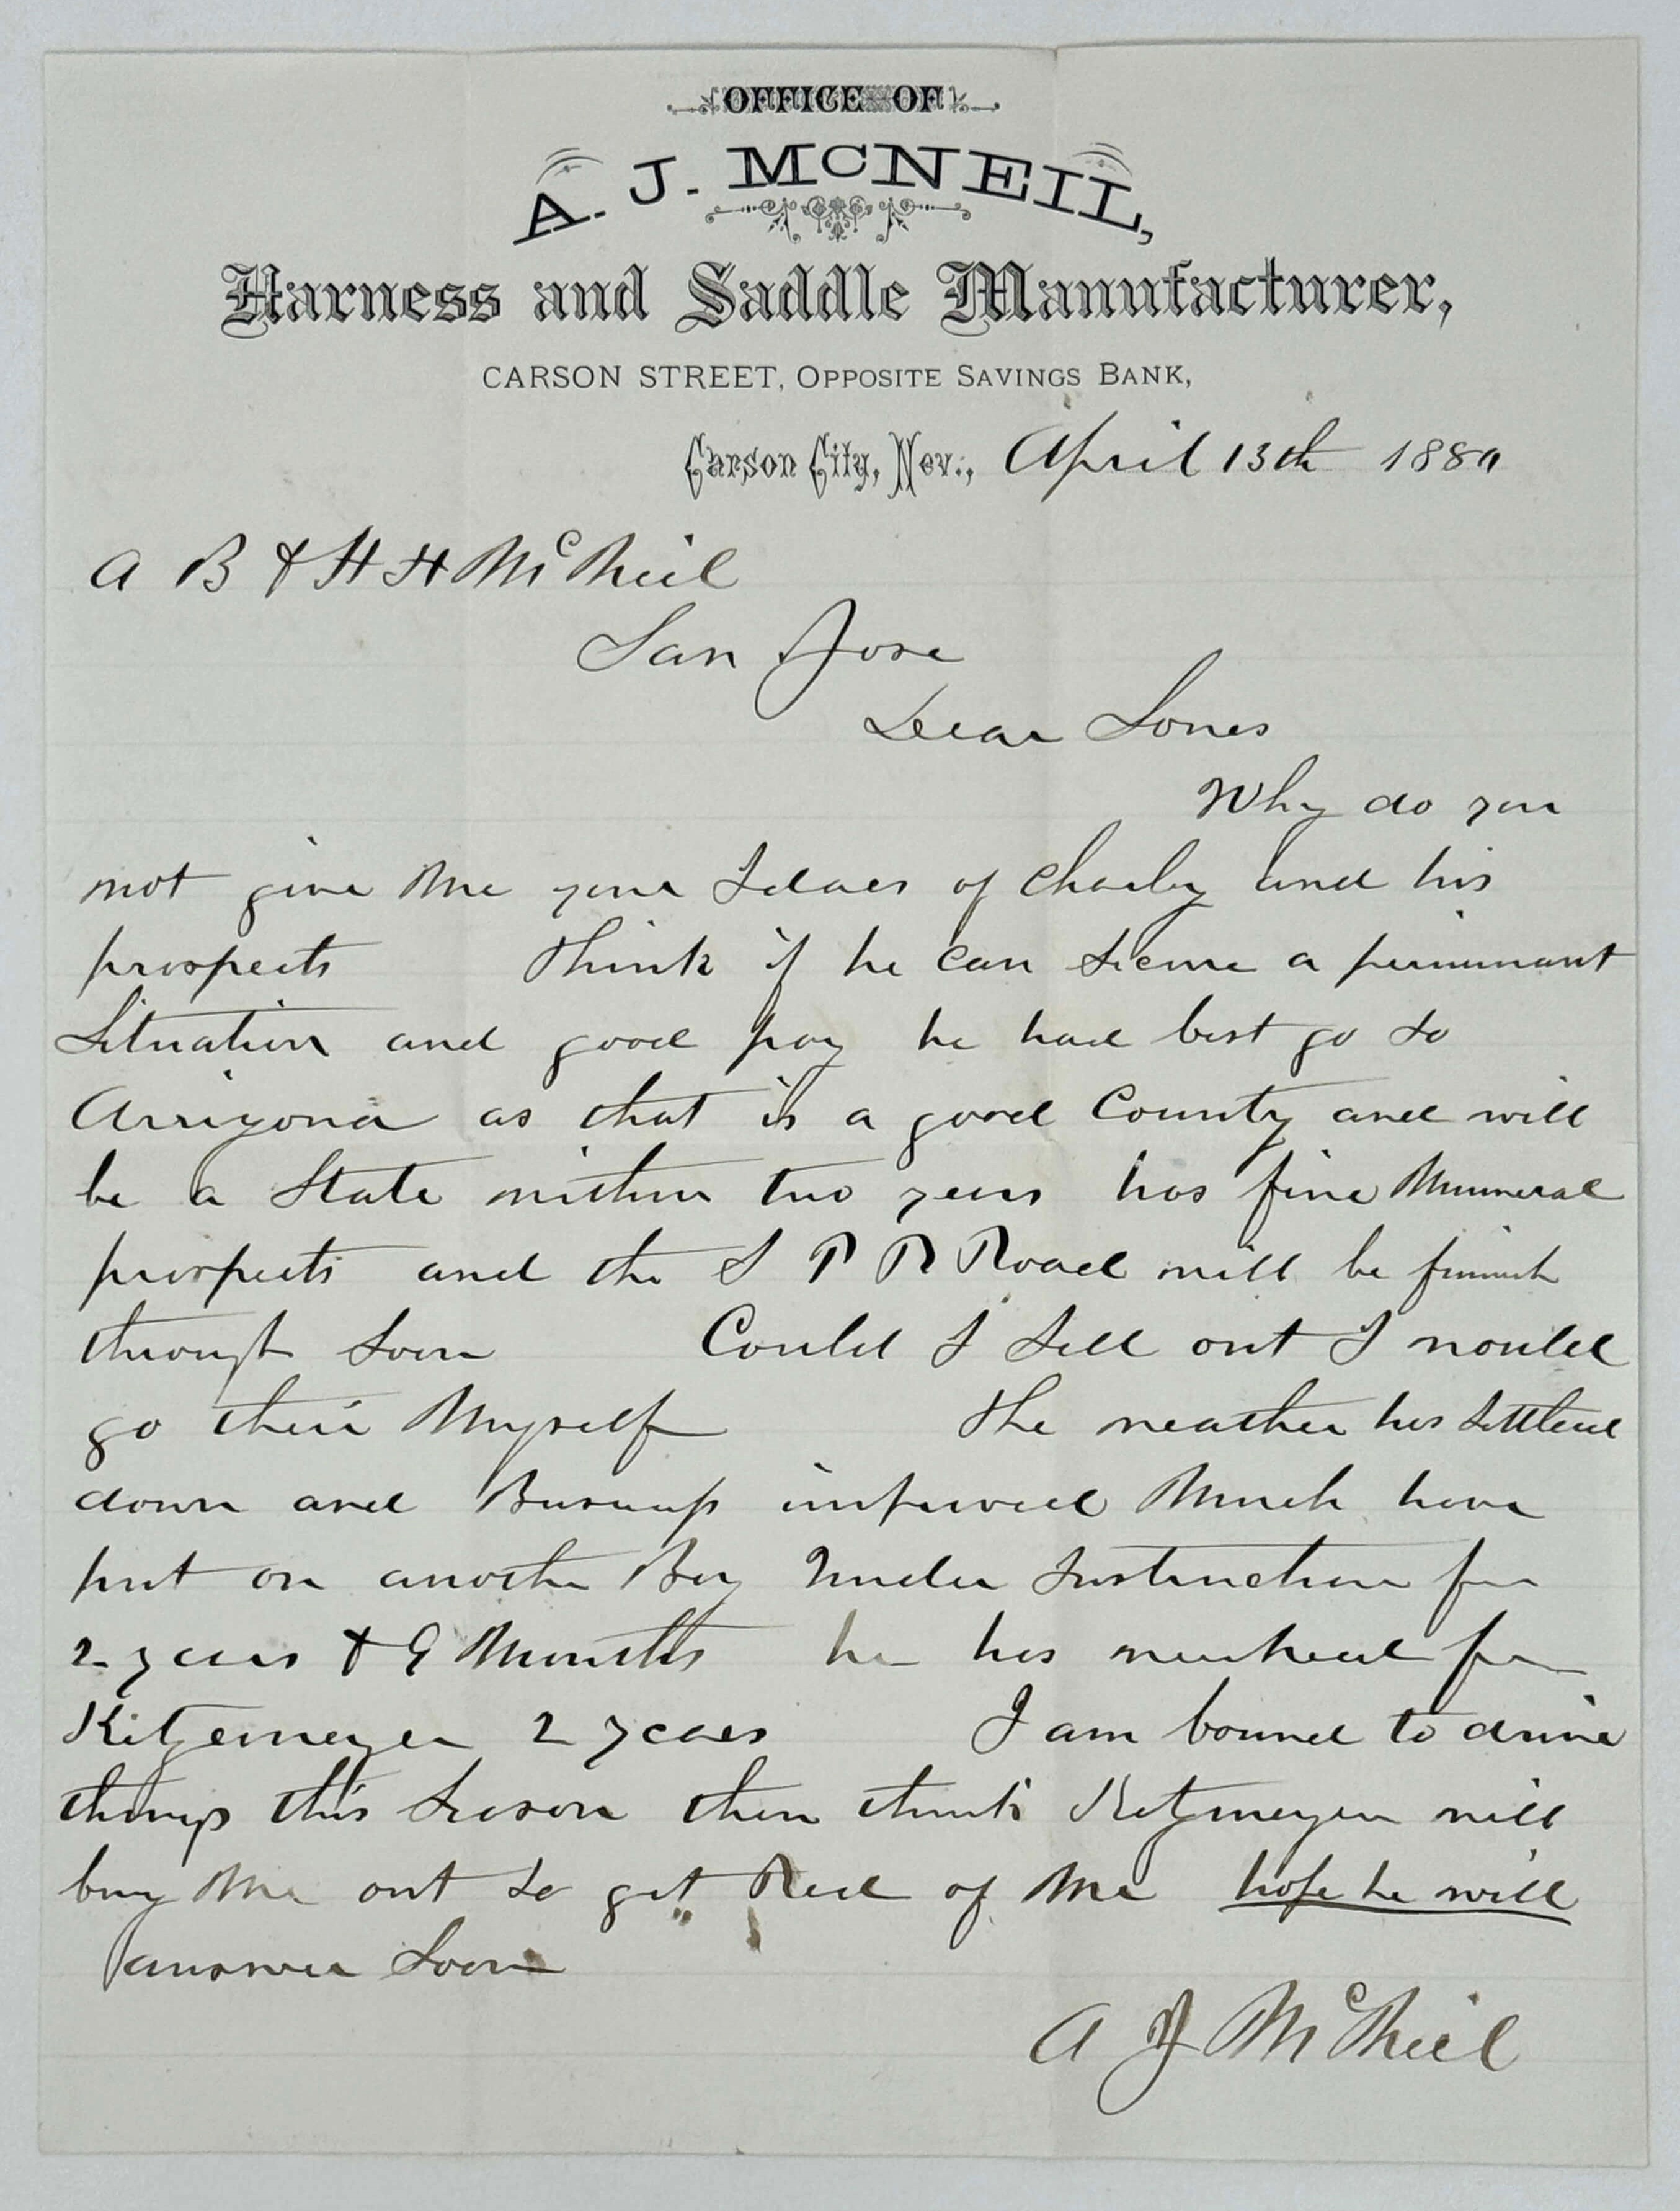 OFFICE OF
A. J. McNEIL,
Harness and Saddle Manufacturer,
CARSON STREET, OPPOSITE SAVINGS BANK,
Carson City, Nev., April 13th 1880
A B & H H McNeil
San Jose
Dear Sones
Why do you
not give Me your Idaes of Charley and his
prospects Think if he can secure a permimant
Situation and good pay he had best go to
Arrizona as that is a good County and will
be a State within two years has fine Munneral
prospects and the S P R Road will be finish
through Soon Could I Sell out I would
go their Myself The weather has Settleed
down and Business improved Much have
put on another Boy Under Instruction for
2 years & 9 Months he has worked for
Kitzemeyer 2 years I am bound to drive
things this Season then think Kitzmeyer will
buy Me out to get Red of Me hope he will
answer Soon
A J McNeil